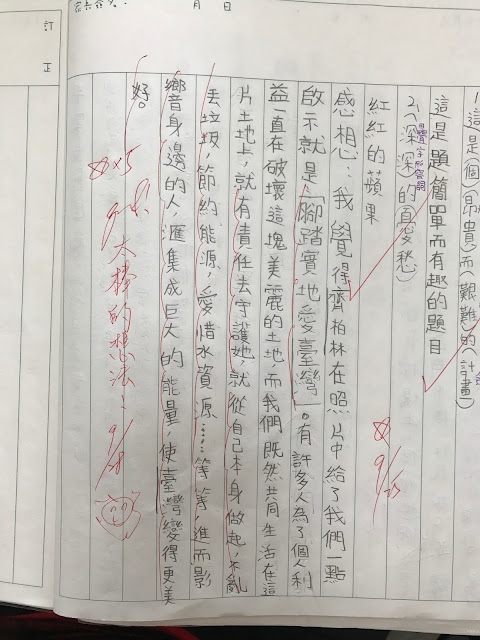 1.這是(個)(昂貴)而(艱難)的(計畫)
這是題簡單而有趣的題目
2.(深深)的(憂愁)
疊字形容詞
紅紅的蘋果
9/25
感相心:我覺得齊柏林在照片中給了我們一點
啟示就是「腳踏實地愛臺灣」。有許多人為了個人利
益一直在破壞這塊美麗的土地,而我們既然共同生活在這
片土地上,就有責任去守護她,就從自己本身做起,不亂
丟垃圾,節約能源,愛惜水資源……等等,進而影
響身邊的人,匯集成巨大的能量,使臺灣變得更美
好。
太棒的想法!
月 日
訂正